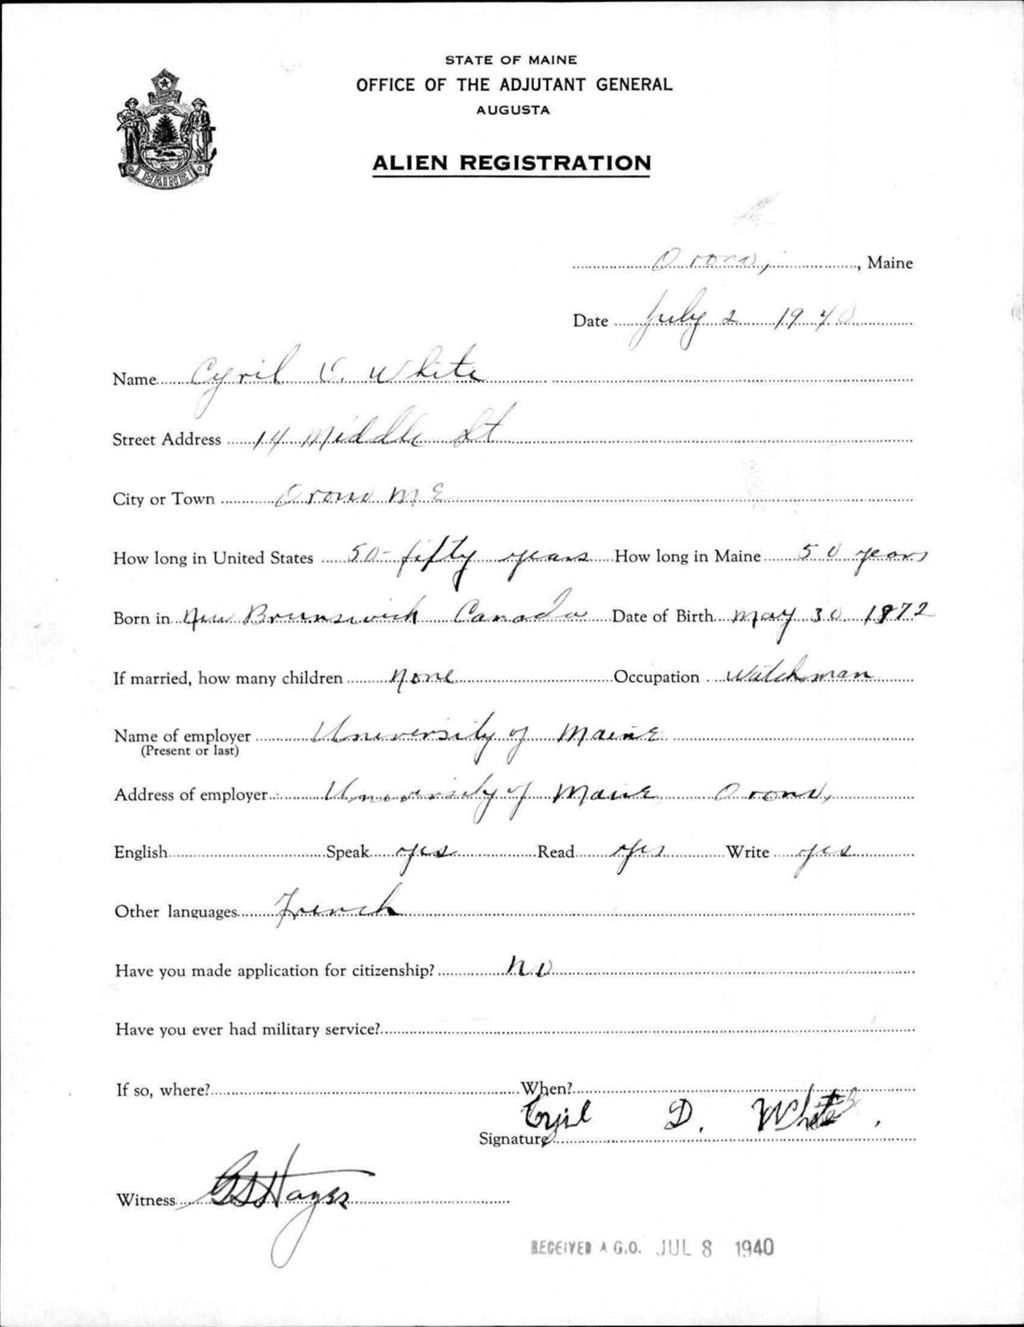 STATE OF MAINE
OFFICE OF THE ADJUTANT GENERAL
AUGUSTA
ALIEN REGISTRATION
MAINE
Orono, , Maine
Date July 2 1940
Name Cyril V. White
Street Address 14 Middle St
City or Town Orono ME
How long in United States 50 - fifty years How long in Maine 50 years
Born in New Brunswick Canada Date of Birth May 30 1872
If married, how many children None Occupation Watchman
Name of employer University of Maine
(Present or last)
Address of employer University of Maine Orono,
English Speak yes Read yes Write yes
Other languages French
Have you made application for citizenship? No
Have you ever had military service?
If so, where? When?
Signature Cyril D. White.
Witness Hayes
RECEIVED A.G.O. JUL 8 1940